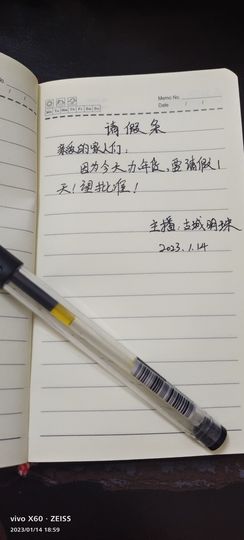 Memo No.
Mo Tu We Th Fr Sa Su
Date / /
请假条
亲爱的家人们:
因为今天办年货,要请假1
天!望批准!
主播:古城明珠
2023.1.14
vivo X60 · ZEISS
2023/01/14 18:59